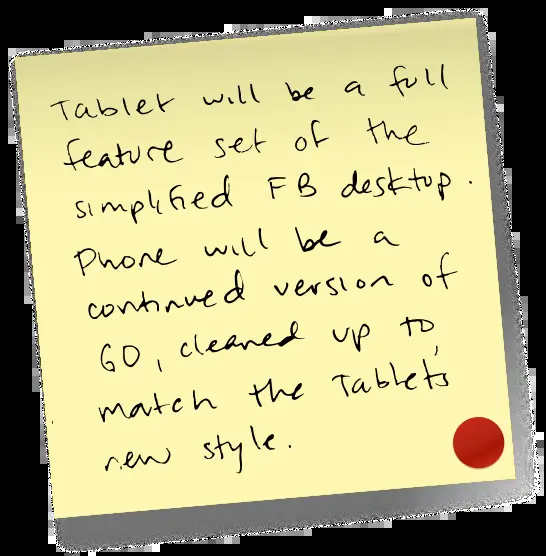 Tablet will be a full
feature set of the
simplified FB desktop.
Phone will be a
continued version of
GO, cleaned up to
match the Tablet's
new style.